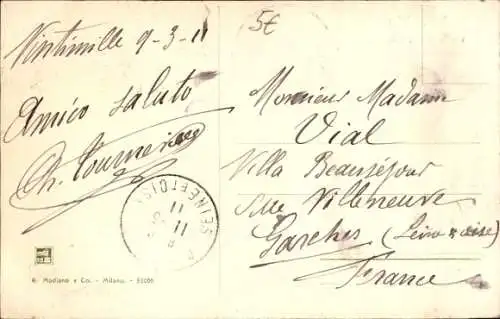 Vintimille 9-3-11
Amico saluto
Ch. Tournier
5€
Monsieur Madame
Vial
Villa Beauséjour
Villeneuve
Garches (Seine & Oise)
France
SEINE ET OISE
11
G. Modiano e Co. - Milano. -